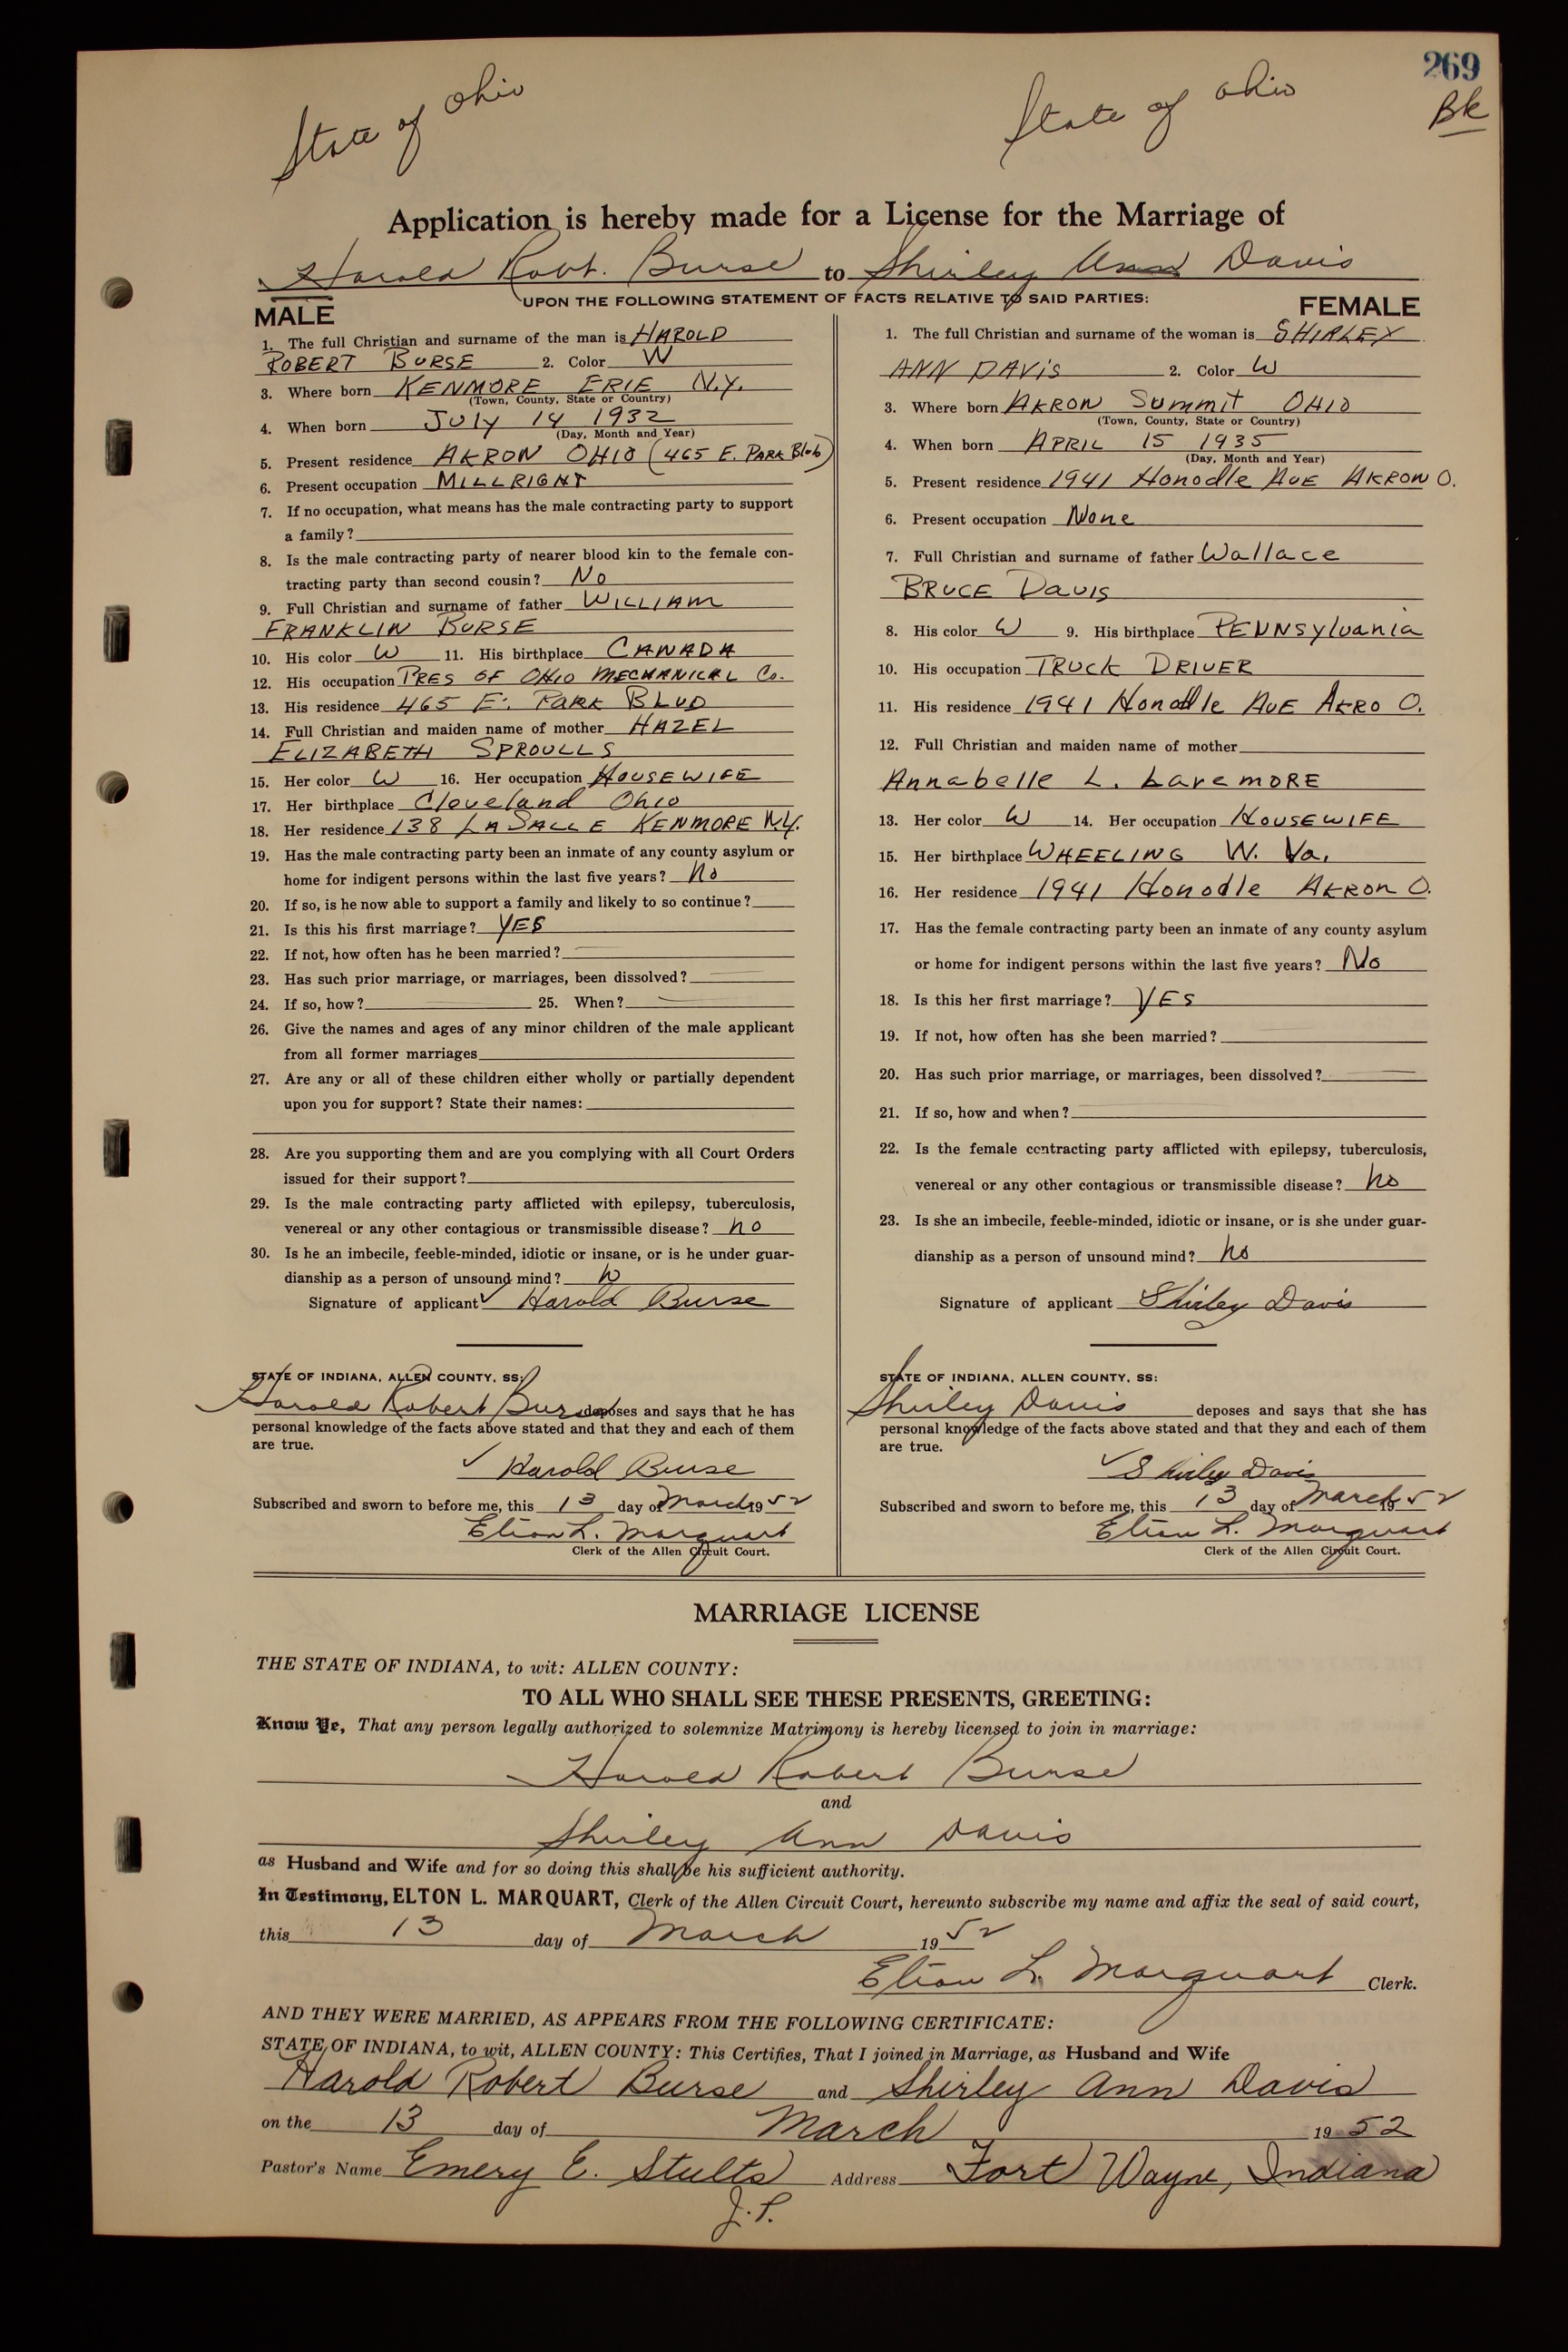 269
Bk
State of Ohio
State of Ohio
Application is hereby made for a License for the Marriage of
Harold Robt. Burse to Shirley Ann Davis
UPON THE FOLLOWING STATEMENT OF FACTS RELATIVE TO SAID PARTIES:
MALE
1. The full Christian and surname of the man is HAROLD
ROBERT BURSE 2. Color W
3. Where born KENMORE ERIE N.Y.
(Town, County, State or Country)
4. When born JULY 14 1932
(Day, Month and Year)
5. Present residence AKRON OHIO (465 E. PARK Blvb)
6. Present occupation MILLRIGHT
7. If no occupation, what means has the male contracting party to support
a family?
8. Is the male contracting party of nearer blood kin to the female con-
tracting party than second cousin? No
9. Full Christian and surname of father WILLIAM
FRANKLIN BURSE
10. His color W 11. His birthplace CANADA
12. His occupation PRES OF OHIO MECHANICAL Co.
13. His residence 465 E. PARK BLVD
14. Full Christian and maiden name of mother HAZEL
ELIZABETH SPROULLS
15. Her color W 16. Her occupation HOUSEWIFE
17. Her birthplace Cleveland Ohio
18. Her residence 138 LASALLE KENMORE N.Y.
19. Has the male contracting party been an inmate of any county asylum or
home for indigent persons within the last five years? No
20. If so, is he now able to support a family and likely to so continue?
21. Is this his first marriage? YES
22. If not, how often has he been married?
23. Has such prior marriage, or marriages, been dissolved?
24. If so, how? 25. When?
26. Give the names and ages of any minor children of the male applicant
from all former marriages
27. Are any or all of these children either wholly or partially dependent
upon you for support? State their names:
28. Are you supporting them and are you complying with all Court Orders
issued for their support?
29. Is the male contracting party afflicted with epilepsy, tuberculosis,
venereal or any other contagious or transmissible disease? no
30. Is he an imbecile, feeble-minded, idiotic or insane, or is he under guar-
dianship as a person of unsound mind? no
Signature of applicant Harold Burse
STATE OF INDIANA, ALLEN COUNTY, SS:
Harold Robert Burse deposes and says that he has
personal knowledge of the facts above stated and that they and each of them
are true.
Harold Burse
Subscribed and sworn to before me, this 13 day of March 1952
Elton L. Marquart
Clerk of the Allen Circuit Court.
FEMALE
1. The full Christian and surname of the woman is SHIRLEY
ANN DAVIS 2. Color W
3. Where born AKRON Summit OHIO
(Town, County, State or Country)
4. When born APRIL 15 1935
(Day, Month and Year)
5. Present residence 1941 Honodle AVE AKRON O.
6. Present occupation None
7. Full Christian and surname of father Wallace
BRUCE DAVIS
8. His color W 9. His birthplace PENNSylvania
10. His occupation TRUCK DRIVER
11. His residence 1941 Honodle AVE AKRO O.
12. Full Christian and maiden name of mother
Annabelle L. LaremORE
13. Her color W 14. Her occupation HOUSEWIFE
15. Her birthplace WHEELING W. Va.
16. Her residence 1941 Honodle AKRON O.
17. Has the female contracting party been an inmate of any county asylum
or home for indigent persons within the last five years? No
18. Is this her first marriage? YES
19. If not, how often has she been married?
20. Has such prior marriage, or marriages, been dissolved?
21. If so, how and when?
22. Is the female contracting party afflicted with epilepsy, tuberculosis,
venereal or any other contagious or transmissible disease? no
23. Is she an imbecile, feeble-minded, idiotic or insane, or is she under guar-
dianship as a person of unsound mind? no
Signature of applicant Shirley Davis
STATE OF INDIANA, ALLEN COUNTY, SS:
Shirley Davis deposes and says that she has
personal knowledge of the facts above stated and that they and each of them
are true.
Shirley Davis
Subscribed and sworn to before me, this 13 day of March 1952
Elton L. Marquart
Clerk of the Allen Circuit Court.
MARRIAGE LICENSE
THE STATE OF INDIANA, to wit: ALLEN COUNTY:
TO ALL WHO SHALL SEE THESE PRESENTS, GREETING:
Know Ye, That any person legally authorized to solemnize Matrimony is hereby licensed to join in marriage:
Harold Robert Burse
and
Shirley Ann Davis
as Husband and Wife and for so doing this shall be his sufficient authority.
In Testimony, ELTON L. MARQUART, Clerk of the Allen Circuit Court, hereunto subscribe my name and affix the seal of said court,
this 13 day of March 1952
Elton L. Marquart Clerk.
AND THEY WERE MARRIED, AS APPEARS FROM THE FOLLOWING CERTIFICATE:
STATE OF INDIANA, to wit, ALLEN COUNTY: This Certifies, That I joined in Marriage, as Husband and Wife
Harold Robert Burse and Shirley Ann Davis
on the 13 day of March 1952
Pastor's Name Emery E. Stults Address Fort Wayne, Indiana
J.P.